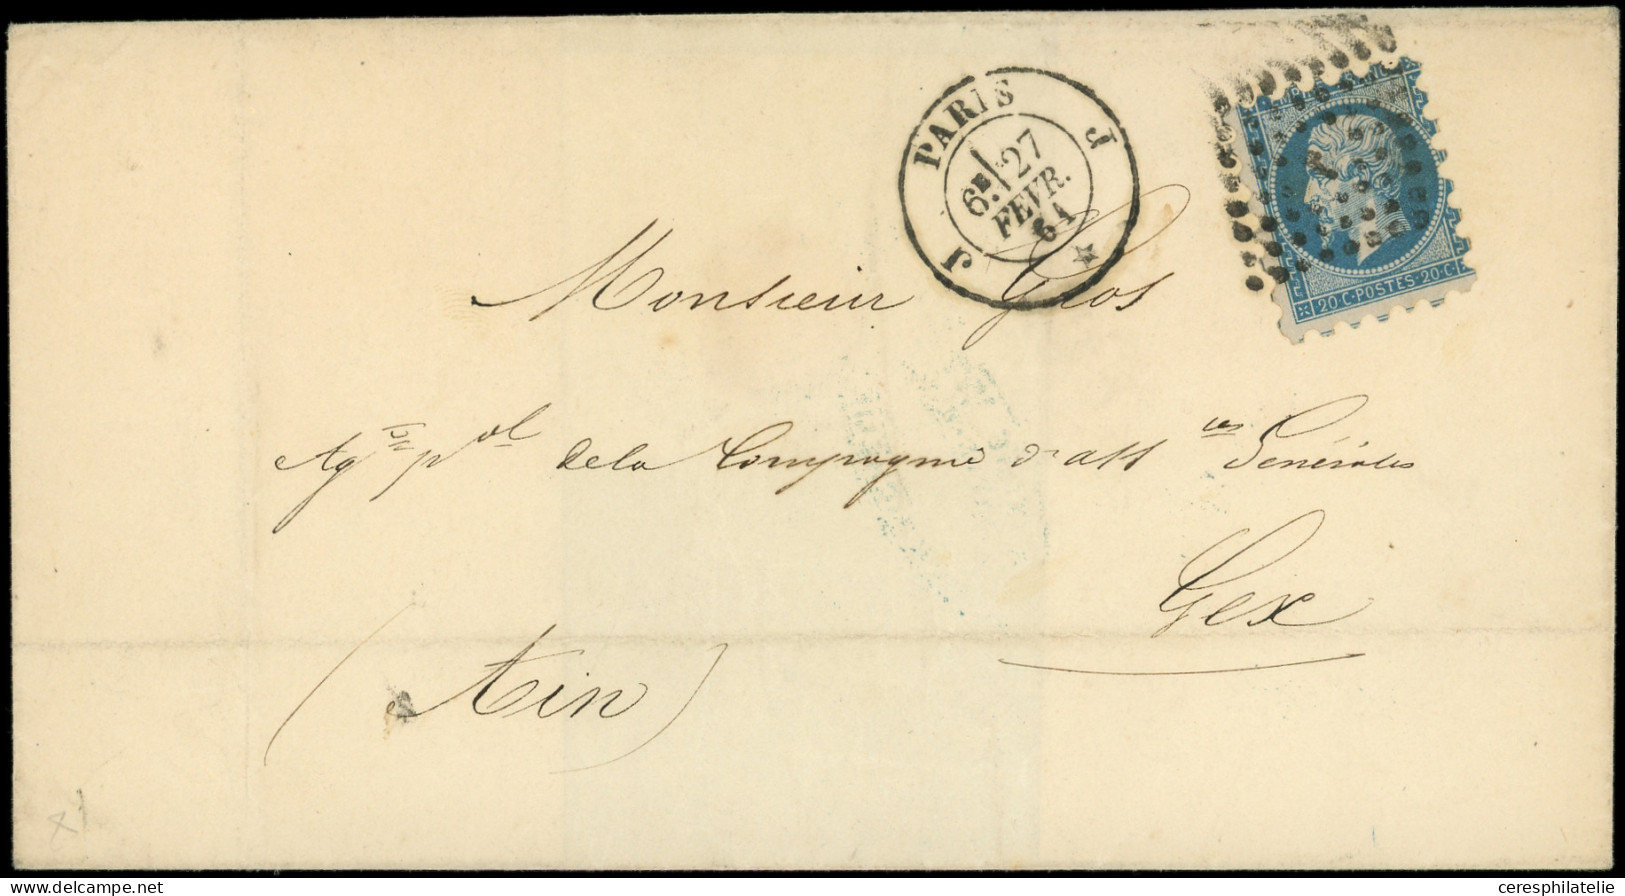 PARIS
J
J
6E 27
FEVR.
61
20·C·POSTES·20·C
J
Monsieur Gros
Agent pal de la Compagnie d'assces Générales
Gex
(Ain)
delcampe.net
ceresphilatelie